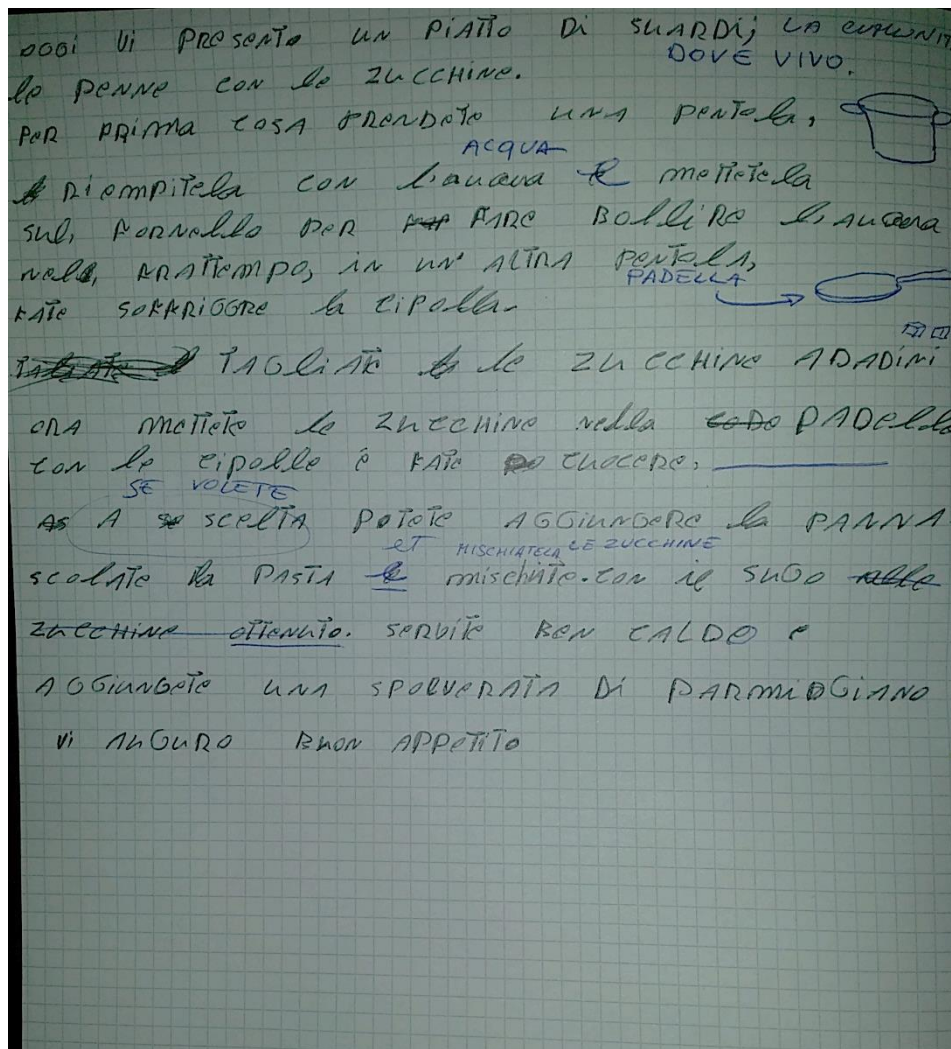 OGGI Vi PRESENTO UN PiATTO Di SUARDI; LA COMUNIT
DOVE VIVO.
le PENNE CON le ZUCCHINE.
PER PRIMA COSA PRENDETE UNA PENTOla,
ACQUA
RiEMPITEla CON l'auqua E METTETEla
sul, FORNELLO PER FARE BOLLIRE l,AUQUA
nell, FRATTEMPO, in UN' ALTRA PENTOLA,
PADELLA
FATE SOFFRIGGRE la CIPOLLA.
TAGLIATE le ZUCCHINE ADADINI
ORA METTETE le ZUCCHINE nella PADELLA
CON le CIPOLLE e FATE CUOCERE.
SE VOLETE
A SCELTA POTETE AGGIUNGERE la PANNA
ET MISCHIATELA LE ZUCCHINE
SCOLATE la PASTA E MISCHIATE.CON il SUGO
ZUCCHINE OTTENUTO. SERVITE BEN CALDO e
AGGIUNGETE UNA SPOLVERATA Di PARMIGGIANO
Vi AUGURO BUON APPETITO